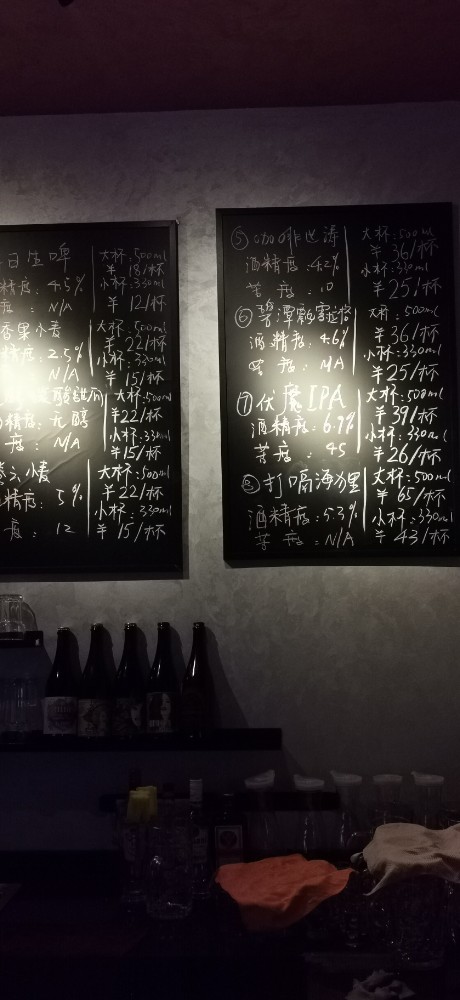 日生啤
精度: 4.5%
度: N/A
大杯:500ml
¥18/杯
小杯:330ml
¥12/杯
香果小麦
精度: 2.5%
N/A
大杯:500ml
¥22/杯
小杯:330ml
¥15/杯
精度: 无醇
度: N/A
大杯:500ml
¥22/杯
小杯:330ml
¥15/杯
小麦
精度: 5%
度: 12
大杯:500ml
¥22/杯
小杯:330ml
¥15/杯
⑤咖啡世涛
酒精度:4.2%
苦度:10
大杯:500ml
¥36/杯
小杯:330ml
¥25/杯
⑥碧潭飘雪
酒精度:4.6%
苦度:N/A
大杯:500ml
¥36/杯
小杯:330ml
¥25/杯
⑦伏魔IPA
酒精度:6.7%
苦度:45
大杯:500ml
¥39/杯
小杯:330ml
¥26/杯
⑧打嗝海狸
酒精度:5.3%
苦度:N/A
大杯:500ml
¥65/杯
小杯:330ml
¥43/杯